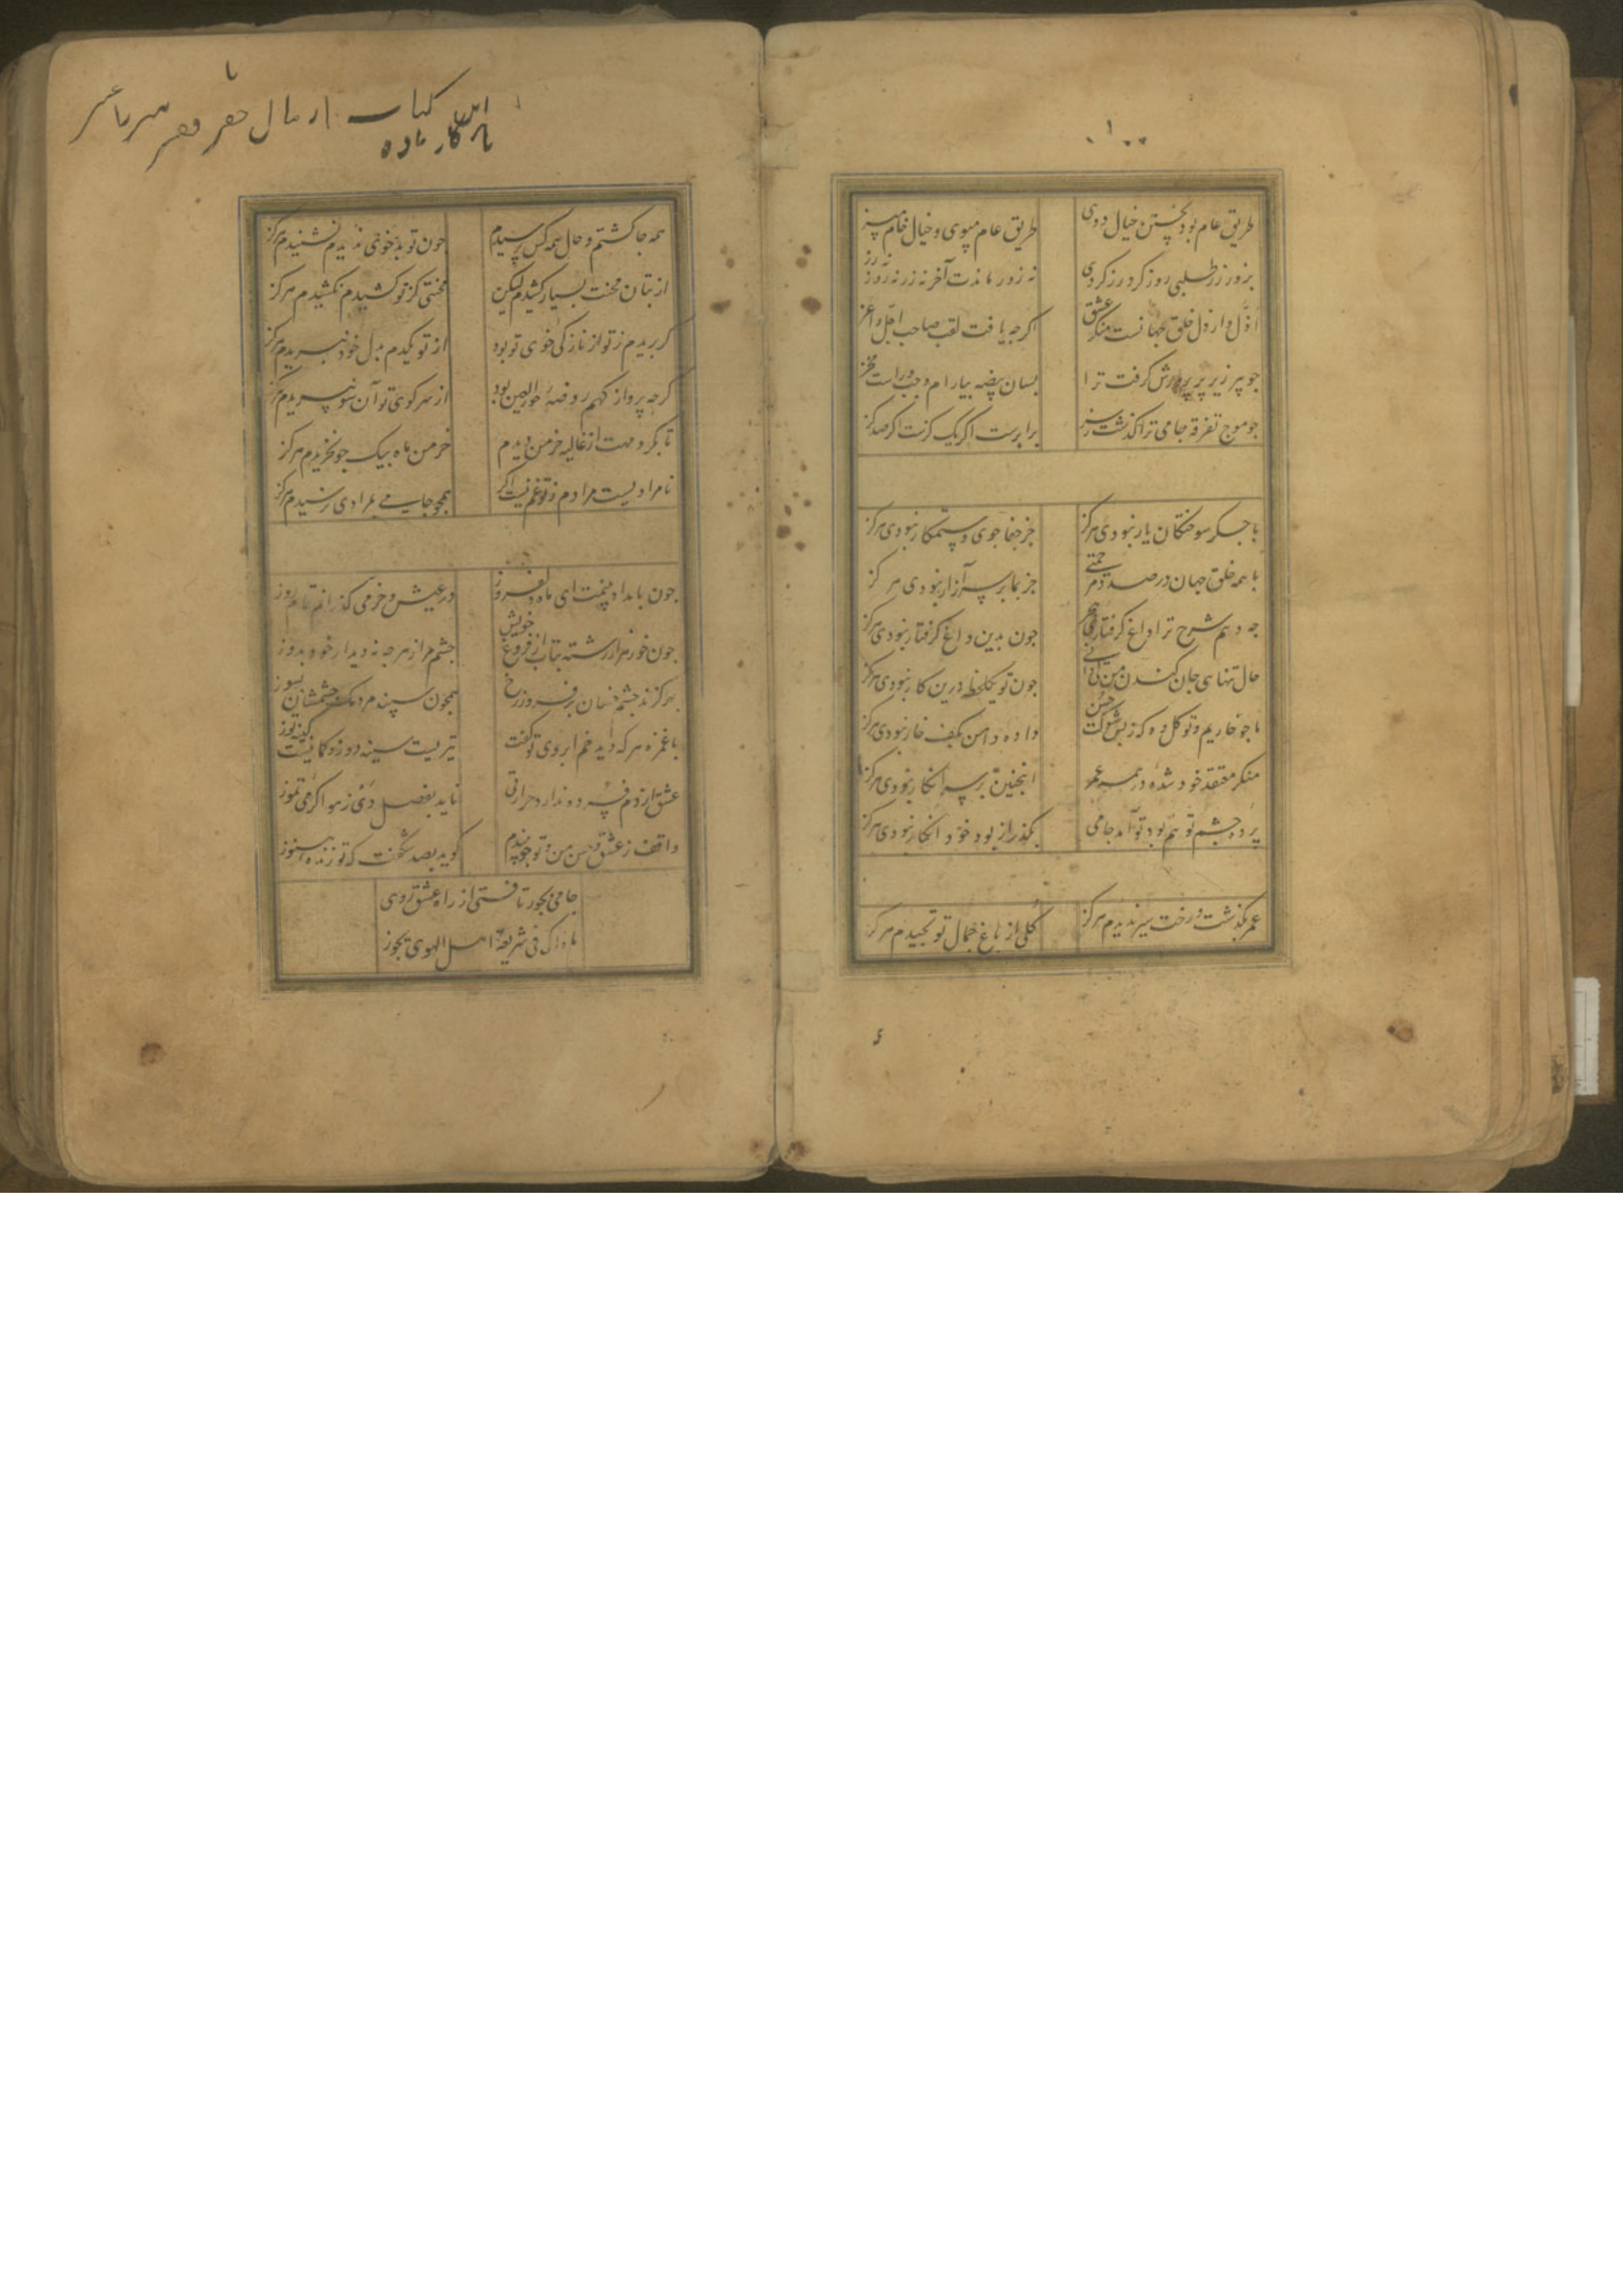 طریق عام بود پختن خیال دوی
طریق عام مپوی و خیال خام مپز
بزور زر طلبی روز کرد زر کردی
نه زور ماندت آخر نه زر نه روز نه رز
اذل و ارذل خلق جهانست منکر عشق
اکرجه یافت لقب صاحب اجل و اعز
جو پیر زیر پر پرورش کرفت ترا
بسان بیضه بیارام و جب و راست مخز
جو موج تفرقه جامی ترا کذشت ز سر
برابرست اکر یک کزست اکر صد کز
با جکر سوختکان یار نبودی هرکز
جز جفا جوی و ستمکار نبودی هرکز
با همه خلق جهان در صدد مرحمتی
جز بما بر سر آزار نبودی هرکز
جه دهم شرح ترا داغ کرفتاری هجر
جون بدین داغ کرفتار نبودی هرکز
حال تنهایی جان کندن من کی دانی
جون تو یکلحظه درین کار نبودی هرکز
ما جو خاریم و تو کل وه که ز بس شوکت حسن
داده دامن بکف خار نبودی هرکز
منکر معتقد خود شده در همه عمر
اینجنین بر سر انکار نبودی هرکز
پرده جشم تو هم بود تو آمد جامی
بکذر از بود خود انکار نبودی هرکز
عمر بکذشت و رخت سیر ندیدم هرکز
کلی از باغ جمال تو نجیدم هرکز
این کتاب از مال
همه جا کشتم و حال همه کس پرسیدم
جون تو بدخوی ندیدم نشنیدم هرکز
از بتان محنت بسیار کشیدم لیکن
محنتی کز تو کشیدم نکشیدم هرکز
کر بریدم ز تو از نازکی خوی تو بود
از تو یکدم بدل خود نبریدم هرکز
کرجه پرواز کهم روضه حور العین بود
از سر کوی تو آن سو نپریدم هرکز
تا بکرد مهت از غالیه خرمن دیدم
خرمن ماه بیک جو نخریدم هرکز
نامرادیست مرادم ز تو غم نیست اکر
همجو جامی بمرادی نرسیدم هرکز
جون بامداد بینمت ای ماه دلفروز
در عیش و خرمی کذرانم تمام روز
جون خور هزار رشته بتاب از فروغ خویش
جشمم را ز هر جه نه دیدار خود بدوز
هر کزند جشم خسان برفروز رخ
همجون سپند مردمک جشمشان بسوز
با غمزه هر که دید خم ابروی تو کفت
تیریست سینه دوز و کمانیست کینه توز
عشق از دم فسرده ندارد حرارتی
ناید بفصل دی ز هوا کرمی تموز
واقف ز عشق و حسن من و تو جو بیندم
کوید بصد شکفت که تو زنده هنوز
جامی بجور تافتی از راه عشق روی
ما ذاک فی شریعة اهل الهوی یجوز